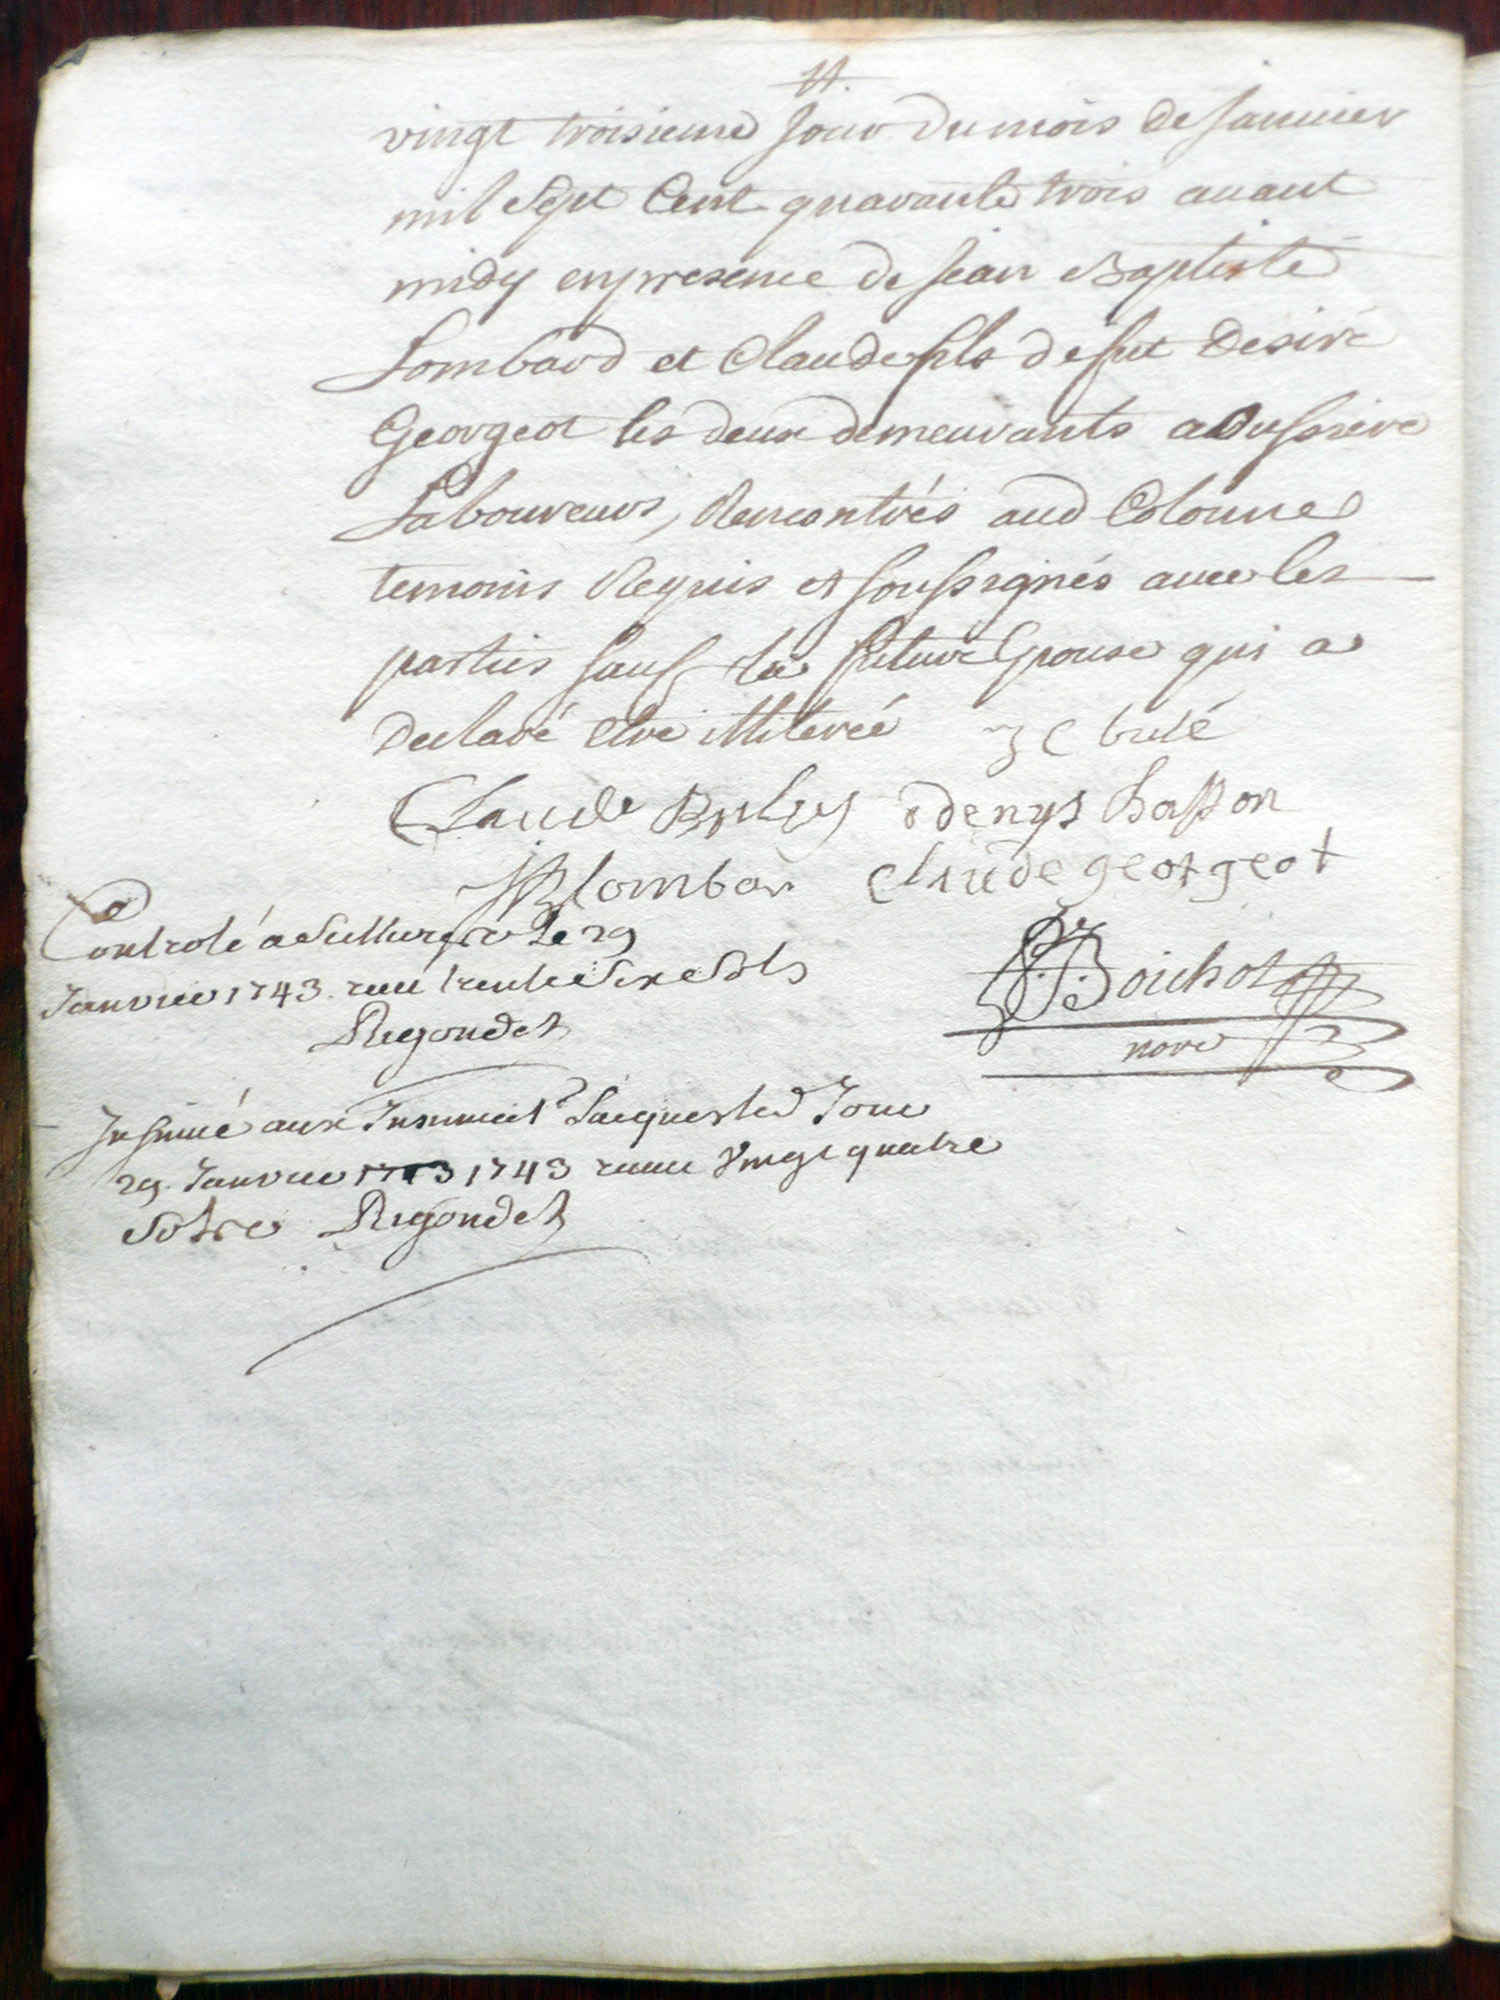 vingt troisieme jour du mois de janvier
mil sept cent quarante trois avant
midy en presence de jean Baptiste
Lombard et Claude fils de fut Desiré
Georgeot les deux demeurants a oussiere
Laboureurs, Rencontrés aud Colonne
temoins Requis et soussignés avec les
parties sauf la future Epouse qui a
declaré etre illiterée J C bulé
Claude denys hasson
JB lombar claude georgeot
Controlé a Sellieres le 29
Janvier 1743. receu trente six sols
Rigondet
Boichot
nore
Insinué aux Insinuat. Lacquesled Jour
29. Janvier 1743 receu vingt quatre
Sols Rigondet